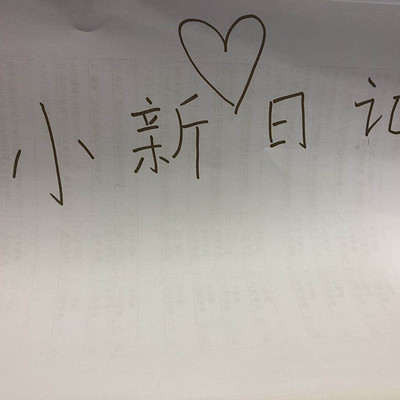 小新日记